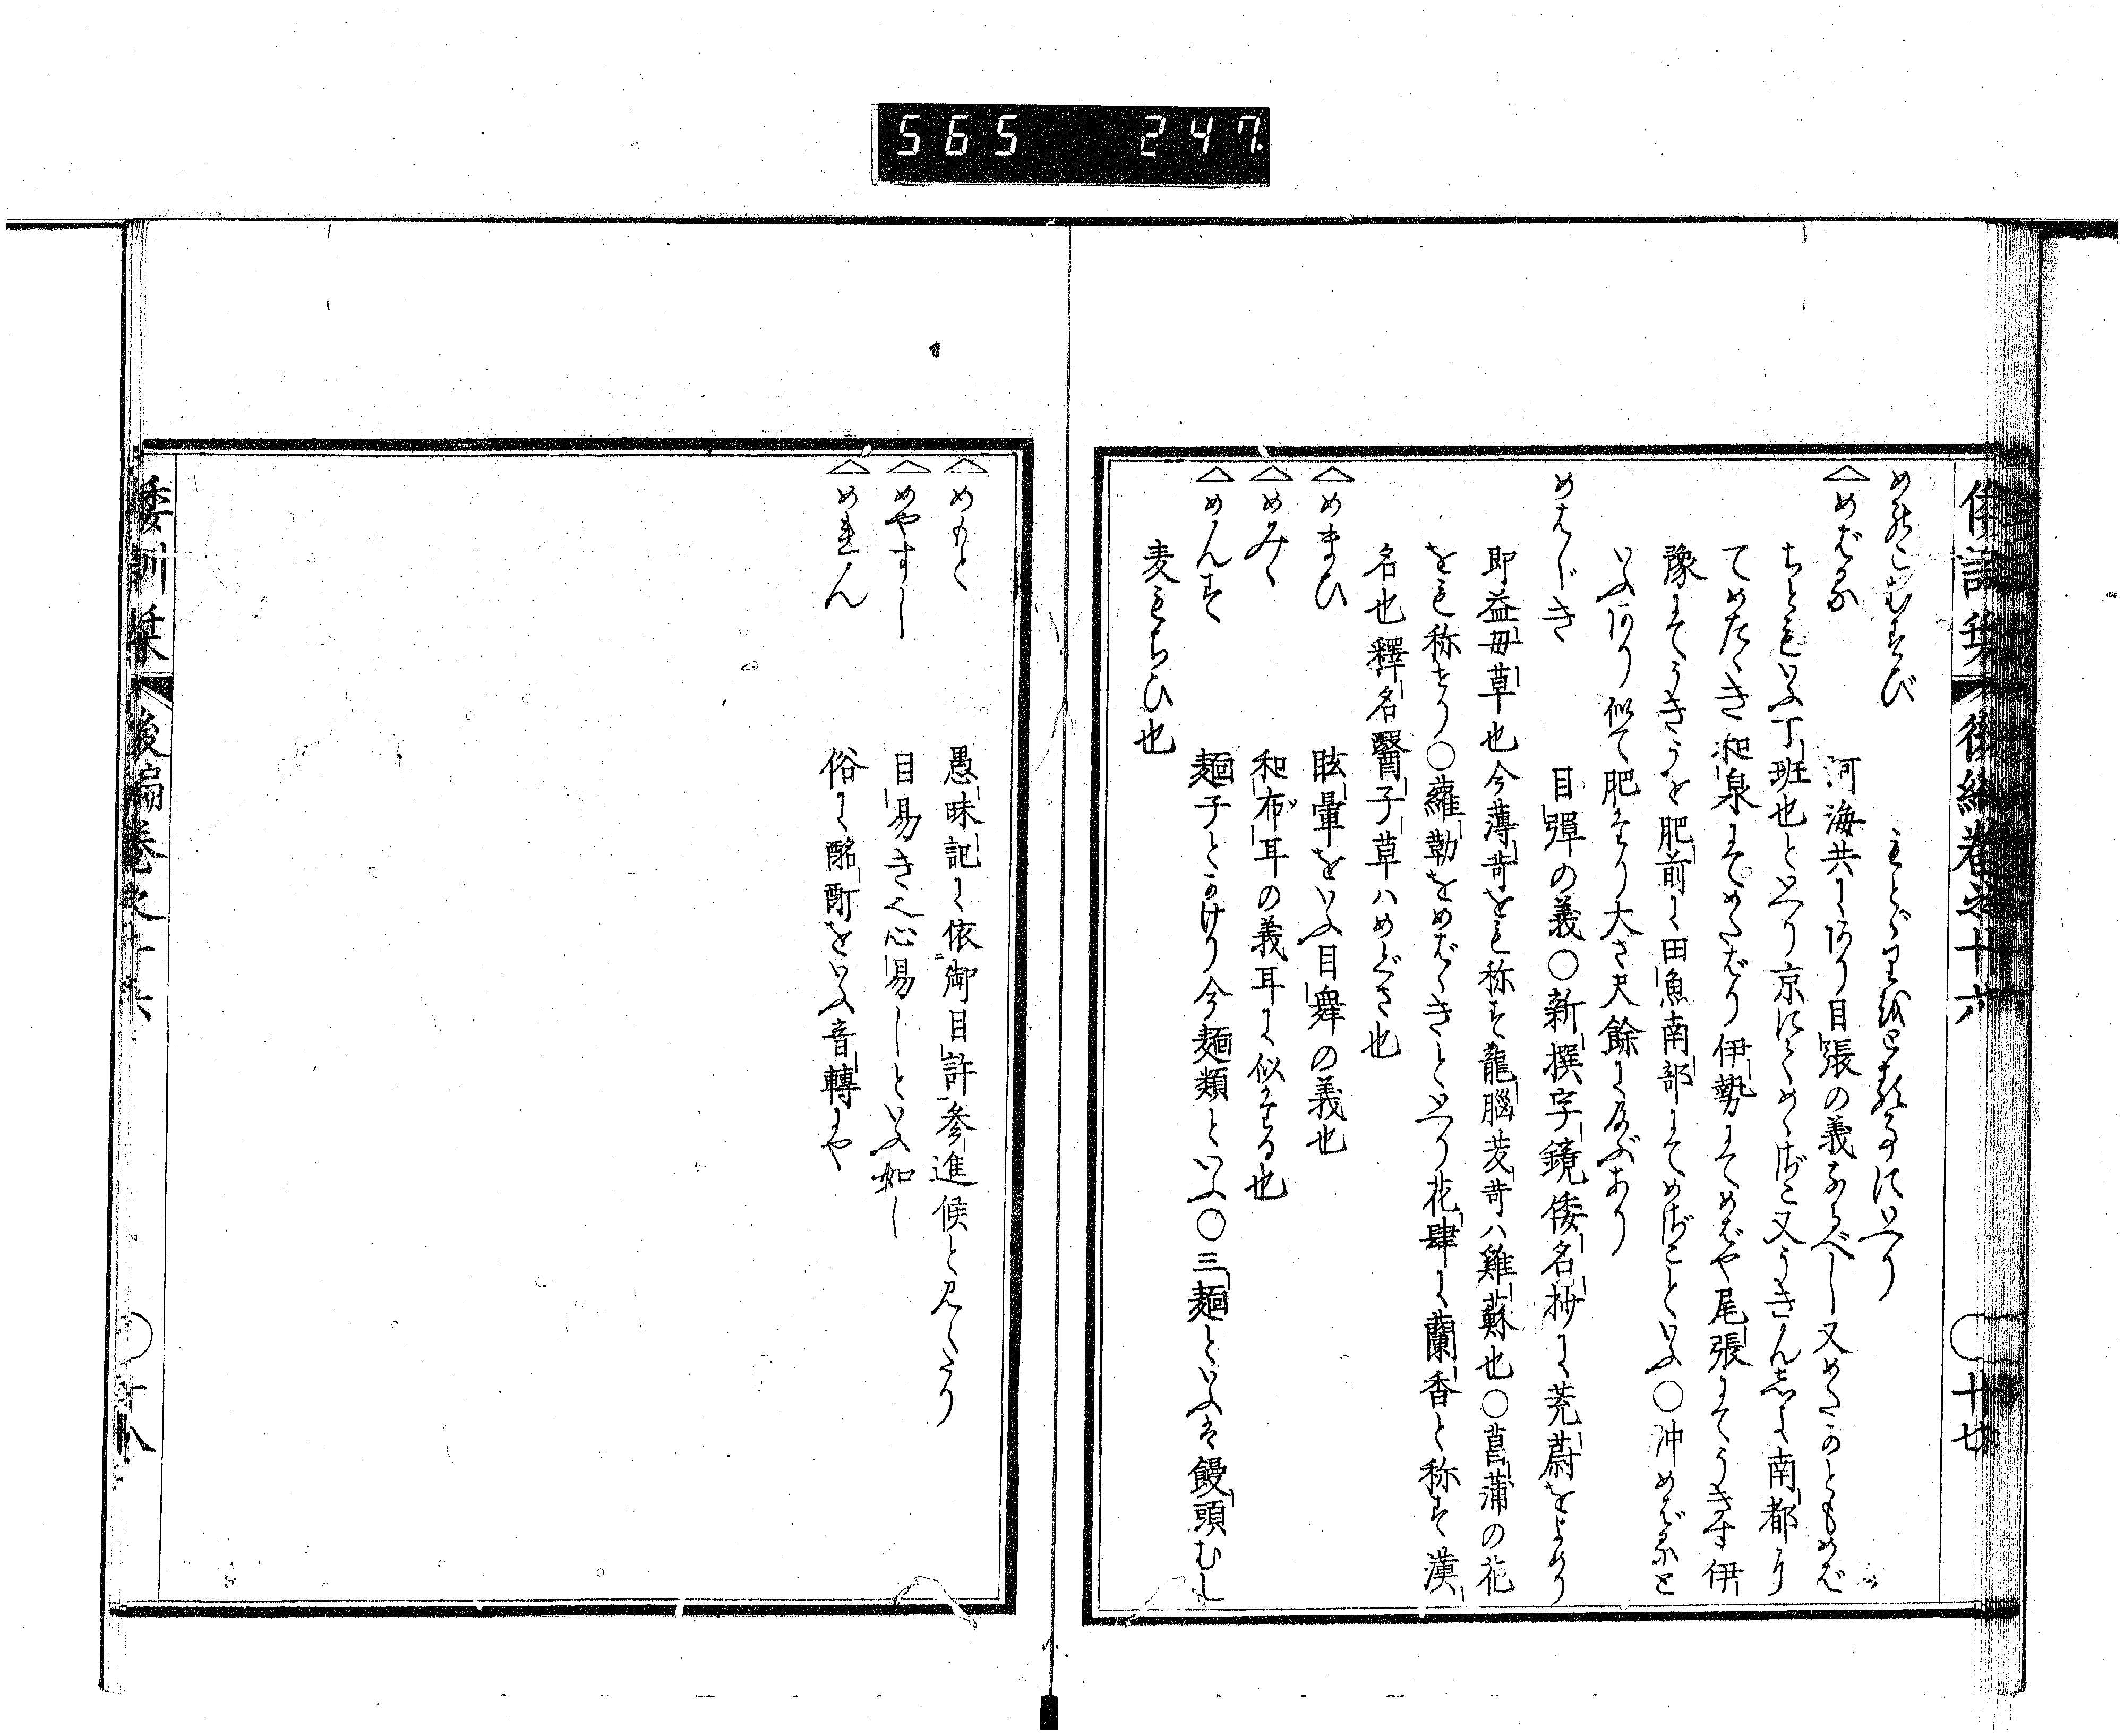 565 247.
倭訓栞 後編巻之十六 ○十七
めのこむすび
△めばる 河海共にあり目張の義なるべし又めたかともめば
ちともいふ丁班也といへり京にてめゝざこ又うきんじよ南都り
てめたゝき和泉にてめたばり伊勢にてめばや尾張にてうきす伊
豫にてうきうを肥前に田魚南部にてめざことといふ○沖めばると
いふあり似て肥たり大さ尺餘に及ぶあり
めはじき 目弾の義○新撰字鏡倭名抄に茺蔚をよめり
即益母草也今薄荷をも称す龍脳茇荷ハ雞蘇也○菖蒲の花
をも称せり○蘿勒をめばゝきといへり花肆に蘭香と称す漢
名也釋名醫子草ハめぐさ也
△めまひ 眩暈をいふ目舞の義也
△めみゝ 和布耳の義耳に似たる也
△めんす 麺子とかけり今麺類といふ○三麺といふは饅頭むし
麦もちひ也
△めもと 愚昧記に依御目許参進候と見えたり
△めやすし 目易き也心易しといふ如し
△めれん 俗に酩酊をいふ音轉にや
倭訓栞 後編巻之十六 ○十八